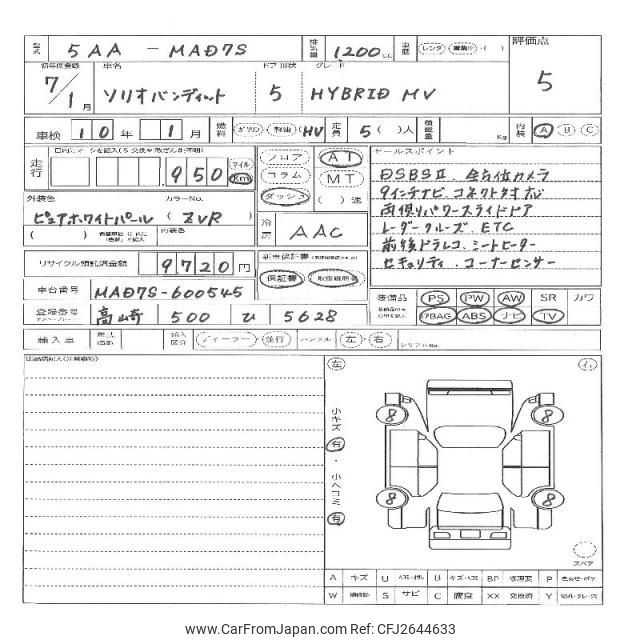 型式 5AA - MAD7S 排気量 1200cc 車歴 レンタ ( ) 評価点
初年度登録 車名 ドア 形状 グレード
7/1月 ソリオバンディット 5 HYBRID MV 5
車検 10年 1月 燃料 ガソリン 軽油 HV 定員 5( )人 積載量 Kg 内装 A B C
走行 950 マイル Km フロア AT セールスポイント
コラム MT DSBSⅡ. 全方位カメラ
外装色 カラーNo. ダッシュ ( )速 9インチナビ. コネクトタオ応
ピュアホワイトパール ( ZVR ) 冷房 AAC 両側パワースライドドア
( ) 内装色 レーダークルーズ. ETC
リサイクル預託済金額 9720円 新車保証書 前後ドラレコ. シートヒーター
保証書 取扱説明書 セキュリティ. コーナーセンサー
車台番号 MAD7S-600545 装備品 PS PW AW SR カワ
登録番号 高崎 500 ひ 5628 AIRBAG ABS ナビ TV
輸入車 年式 輸入区分 ディーラー・並行 ハンドル 左・右 シリアルNo.
左 右
小キズ 有 ・ 小ヘコミ 有
8 8
8 8
スペア
A キズ U B BP 修理変 P
W S サビ C 腐食 XX 交換済 Y
www.CarFromJapan.com - CFJ2644633